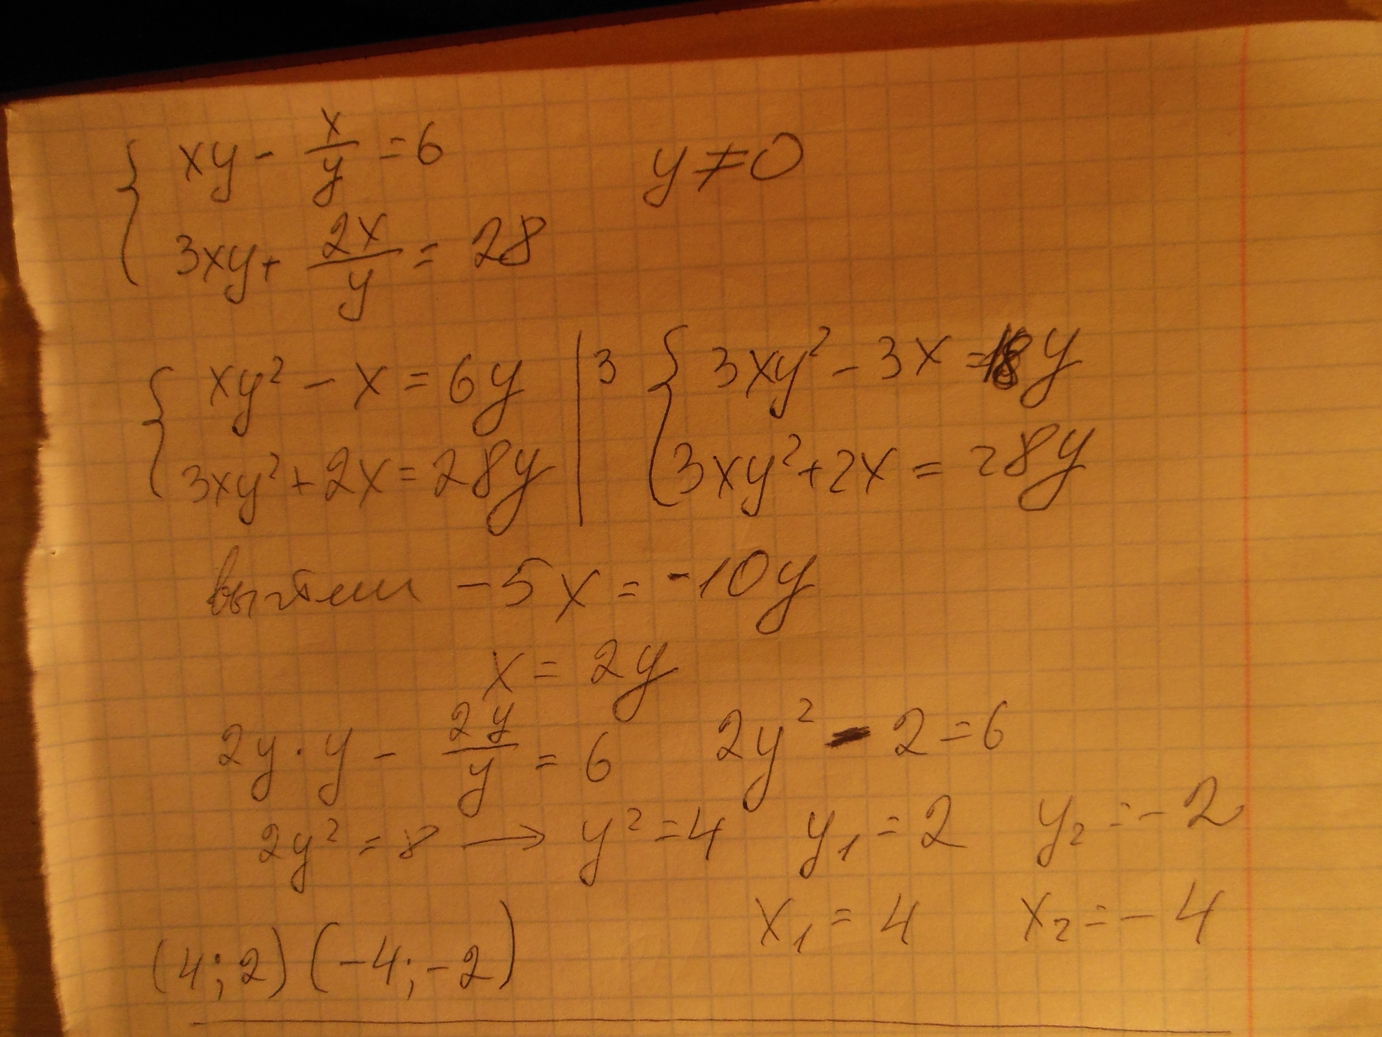 xy - x/y = 6     y ≠ 0
3xy + 2x/y = 28
xy² - x = 6y | 3   3xy² - 3x = 18y
3xy² + 2x = 28y   3xy² + 2x = 28y
вычтем -5x = -10y
x = 2y
2y · y - 2y/y = 6   2y² - 2 = 6
2y² = 8 → y² = 4   y₁ = 2   y₂ = -2
x₁ = 4   x₂ = -4
(4; 2) (-4; -2)